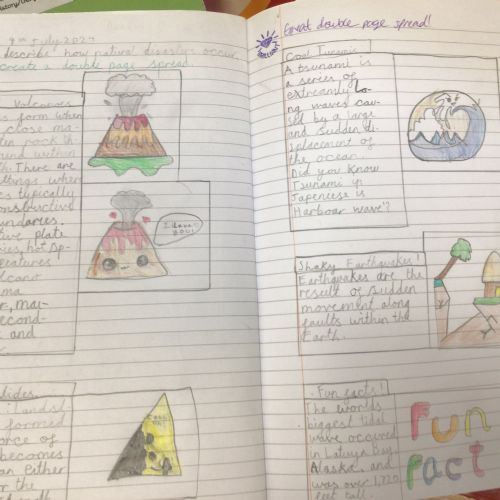 istory/Geo
9th July 2024
describe how natural disasters occur
create a double page spread.
Volcanoes
s form when
close ma-
ten rock in
und within
h. There are
ttings where
es typically
onstructive
undaries,
ive plate
s, hot sp-
eatures
lcano
ma
r, mai-
econd-
and
I love
you!
lides
ilands!
formed
once of
becomes
an either
r the
Great double page spread!
Cool Tunamis
A tsunami is
a series of
extreamly lo-
ng waves cau-
sed by a large
and sudden di-
splacement of
the ocean.
Did you know
Tsunami in
Japencese is
Harbour wave"?
Shaky Earthquakes!
Earthquakes are the
result of sudden
movement along
faults within the
Earth.
Fun facts!
The worlds
biggest tidal
wave occured
in Latuya Bay,
Alaska, and
was over 1,720
feet tall
Fun
Fact